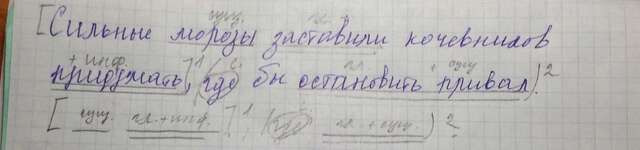 сущ. гл.
[Сильные морозы заставили кочевников
+ инф.
придумать]¹, (где бы остановить привал).²
гл. + сущ
[ сущ. гл.+инф. ]¹, (где гл. + сущ.)²
?